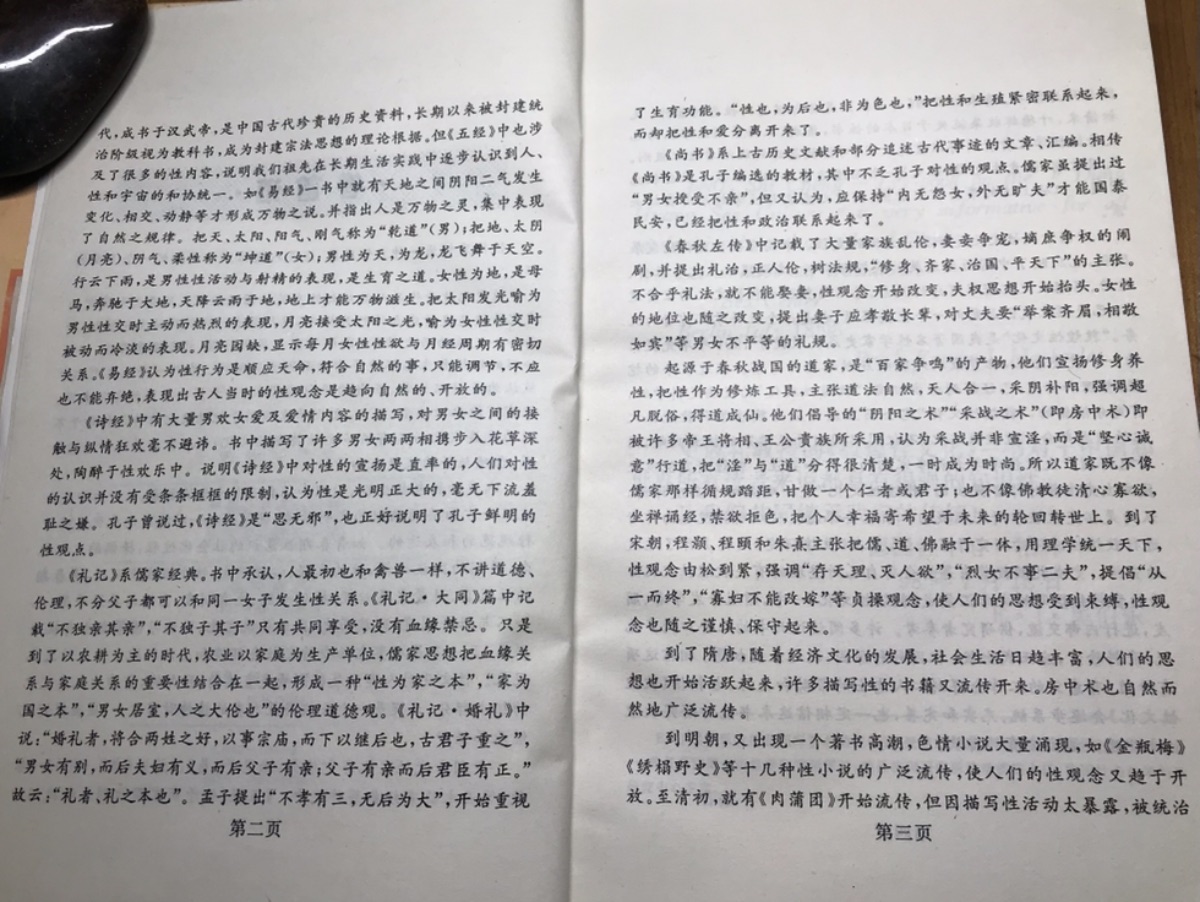 代，成书于汉武帝，是中国古代珍贵的历史资料，长期以来被封建统
治阶级视为教科书，成为封建宗法思想的理论根据。但《五经》中也涉
及了很多的性内容，说明我们祖先在长期生活实践中逐步认识到人、
性和宇宙的和协统一。如《易经》一书中就有天地之间阴阳二气发生
变化、相交、动静等才形成万物之说。并指出人是万物之灵，集中表现
了自然之规律。把天、太阳、阳气、刚气称为“乾道”(男)；把地、太阴
(月亮)、阴气、柔性称为“坤道”(女)；男性为天，为龙，龙飞舞于天空。
行云下雨，是男性性活动与射精的表现，是生育之道。女性为地，是母
马，奔驰于大地，天降云雨于地，地上才能万物滋生。把太阳发光喻为
男性性交时主动而热烈的表现，月亮接受太阳之光，喻为女性性交时
被动而冷淡的表现。月亮园缺，显示每月女性性欲与月经周期有密切
关系。《易经》认为性行为是顺应天命，符合自然的事，只能调节，不应
也不能弃绝，表现出古人当时的性观念是趋向自然的、开放的。
《诗经》中有大量男欢女爱及爱情内容的描写，对男女之间的接
触与纵情狂欢毫不避讳。书中描写了许多男女两两相携步入花草深
处，陶醉于性欢乐中。说明《诗经》中对性的宣扬是直率的，人们对性
的认识并没有受条条框框的限制，认为性是光明正大的，毫无下流羞
耻之嫌。孔子曾说过，《诗经》是“思无邪”，也正好说明了孔子鲜明的
性观点。
《礼记》系儒家经典。书中承认，人最初也和禽兽一样，不讲道德、
伦理，不分父子都可以和同一女子发生性关系。《礼记·大同》篇中记
载“不独亲其亲”，“不独子其子”只有共同享受，没有血缘禁忌。只是
到了以农耕为主的时代，农业以家庭为生产单位，儒家思想把血缘关
系与家庭关系的重要性结合在一起，形成一种“性为家之本”，“家为
国之本”，“男女居室，人之大伦也”的伦理道德观。《礼记·婚礼》中
说：“婚礼者，将合两姓之好，以事宗庙，而下以继后也，古君子重之”，
“男女有别，而后夫妇有义，而后父子有亲；父子有亲而后君臣有正。”
故云：“礼者、礼之本也”。孟子提出“不孝有三，无后为大”，开始重视
第二页
了生育功能。“性也，为后也，非为色也，”把性和生殖紧密联系起来，
而却把性和爱分离开来了。
《尚书》系上古历史文献和部分追述古代事迹的文章、汇编。相传
《尚书》是孔子编选的教材，其中不乏孔子对性的观点。儒家虽提出过
“男女授受不亲”，但又认为，应保持“内无怨女，外无旷夫”才能国泰
民安，已经把性和政治联系起来了。
《春秋左传》中记载了大量家族乱伦，妻妾争宠，嫡庶争权的闹
剧，并提出礼治，正人伦，树法规，“修身、齐家、治国、平天下”的主张。
不合乎礼法，就不能娶妻，性观念开始改变，夫权思想开始抬头。女性
的地位也随之改变，提出妻子应孝敬长辈，对丈夫要“举案齐眉，相敬
如宾”等男女不平等的礼规。
起源于春秋战国的道家，是“百家争鸣”的产物，他们宣扬修身养
性，把性作为修炼工具，主张道法自然，天人合一，采阴补阳，强调超
凡脱俗，得道成仙。他们倡导的“阴阳之术”“采战之术”(即房中术)即
被许多帝王将相、王公贵族所采用，认为采战并非宣淫，而是“坚心诚
意”行道，把“淫”与“道”分得很清楚，一时成为时尚。所以道家既不像
儒家那样循规蹈距，甘做一个仁者或君子；也不像佛教徒清心寡欲，
坐禅诵经，禁欲拒色，把个人幸福寄希望于未来的轮回转世上。到了
宋朝，程颢、程颐和朱熹主张把儒、道、佛融于一体，用理学统一天下，
性观念由松到紧，强调“存天理、灭人欲”，“烈女不事二夫”，提倡“从
一而终”，“寡妇不能改嫁”等贞操观念，使人们的思想受到束缚，性观
念也随之谨慎、保守起来。
到了隋唐，随着经济文化的发展，社会生活日趋丰富，人们的思
想也开始活跃起来，许多描写性的书籍又流传开来。房中术也自然而
然地广泛流传。
到明朝，又出现一个著书高潮，色情小说大量涌现，如《金瓶梅》
《绣榻野史》等十几种性小说的广泛流传，使人们的性观念又趋于开
放。至清初，就有《肉蒲团》开始流传，但因描写性活动太暴露，被统治
第三页